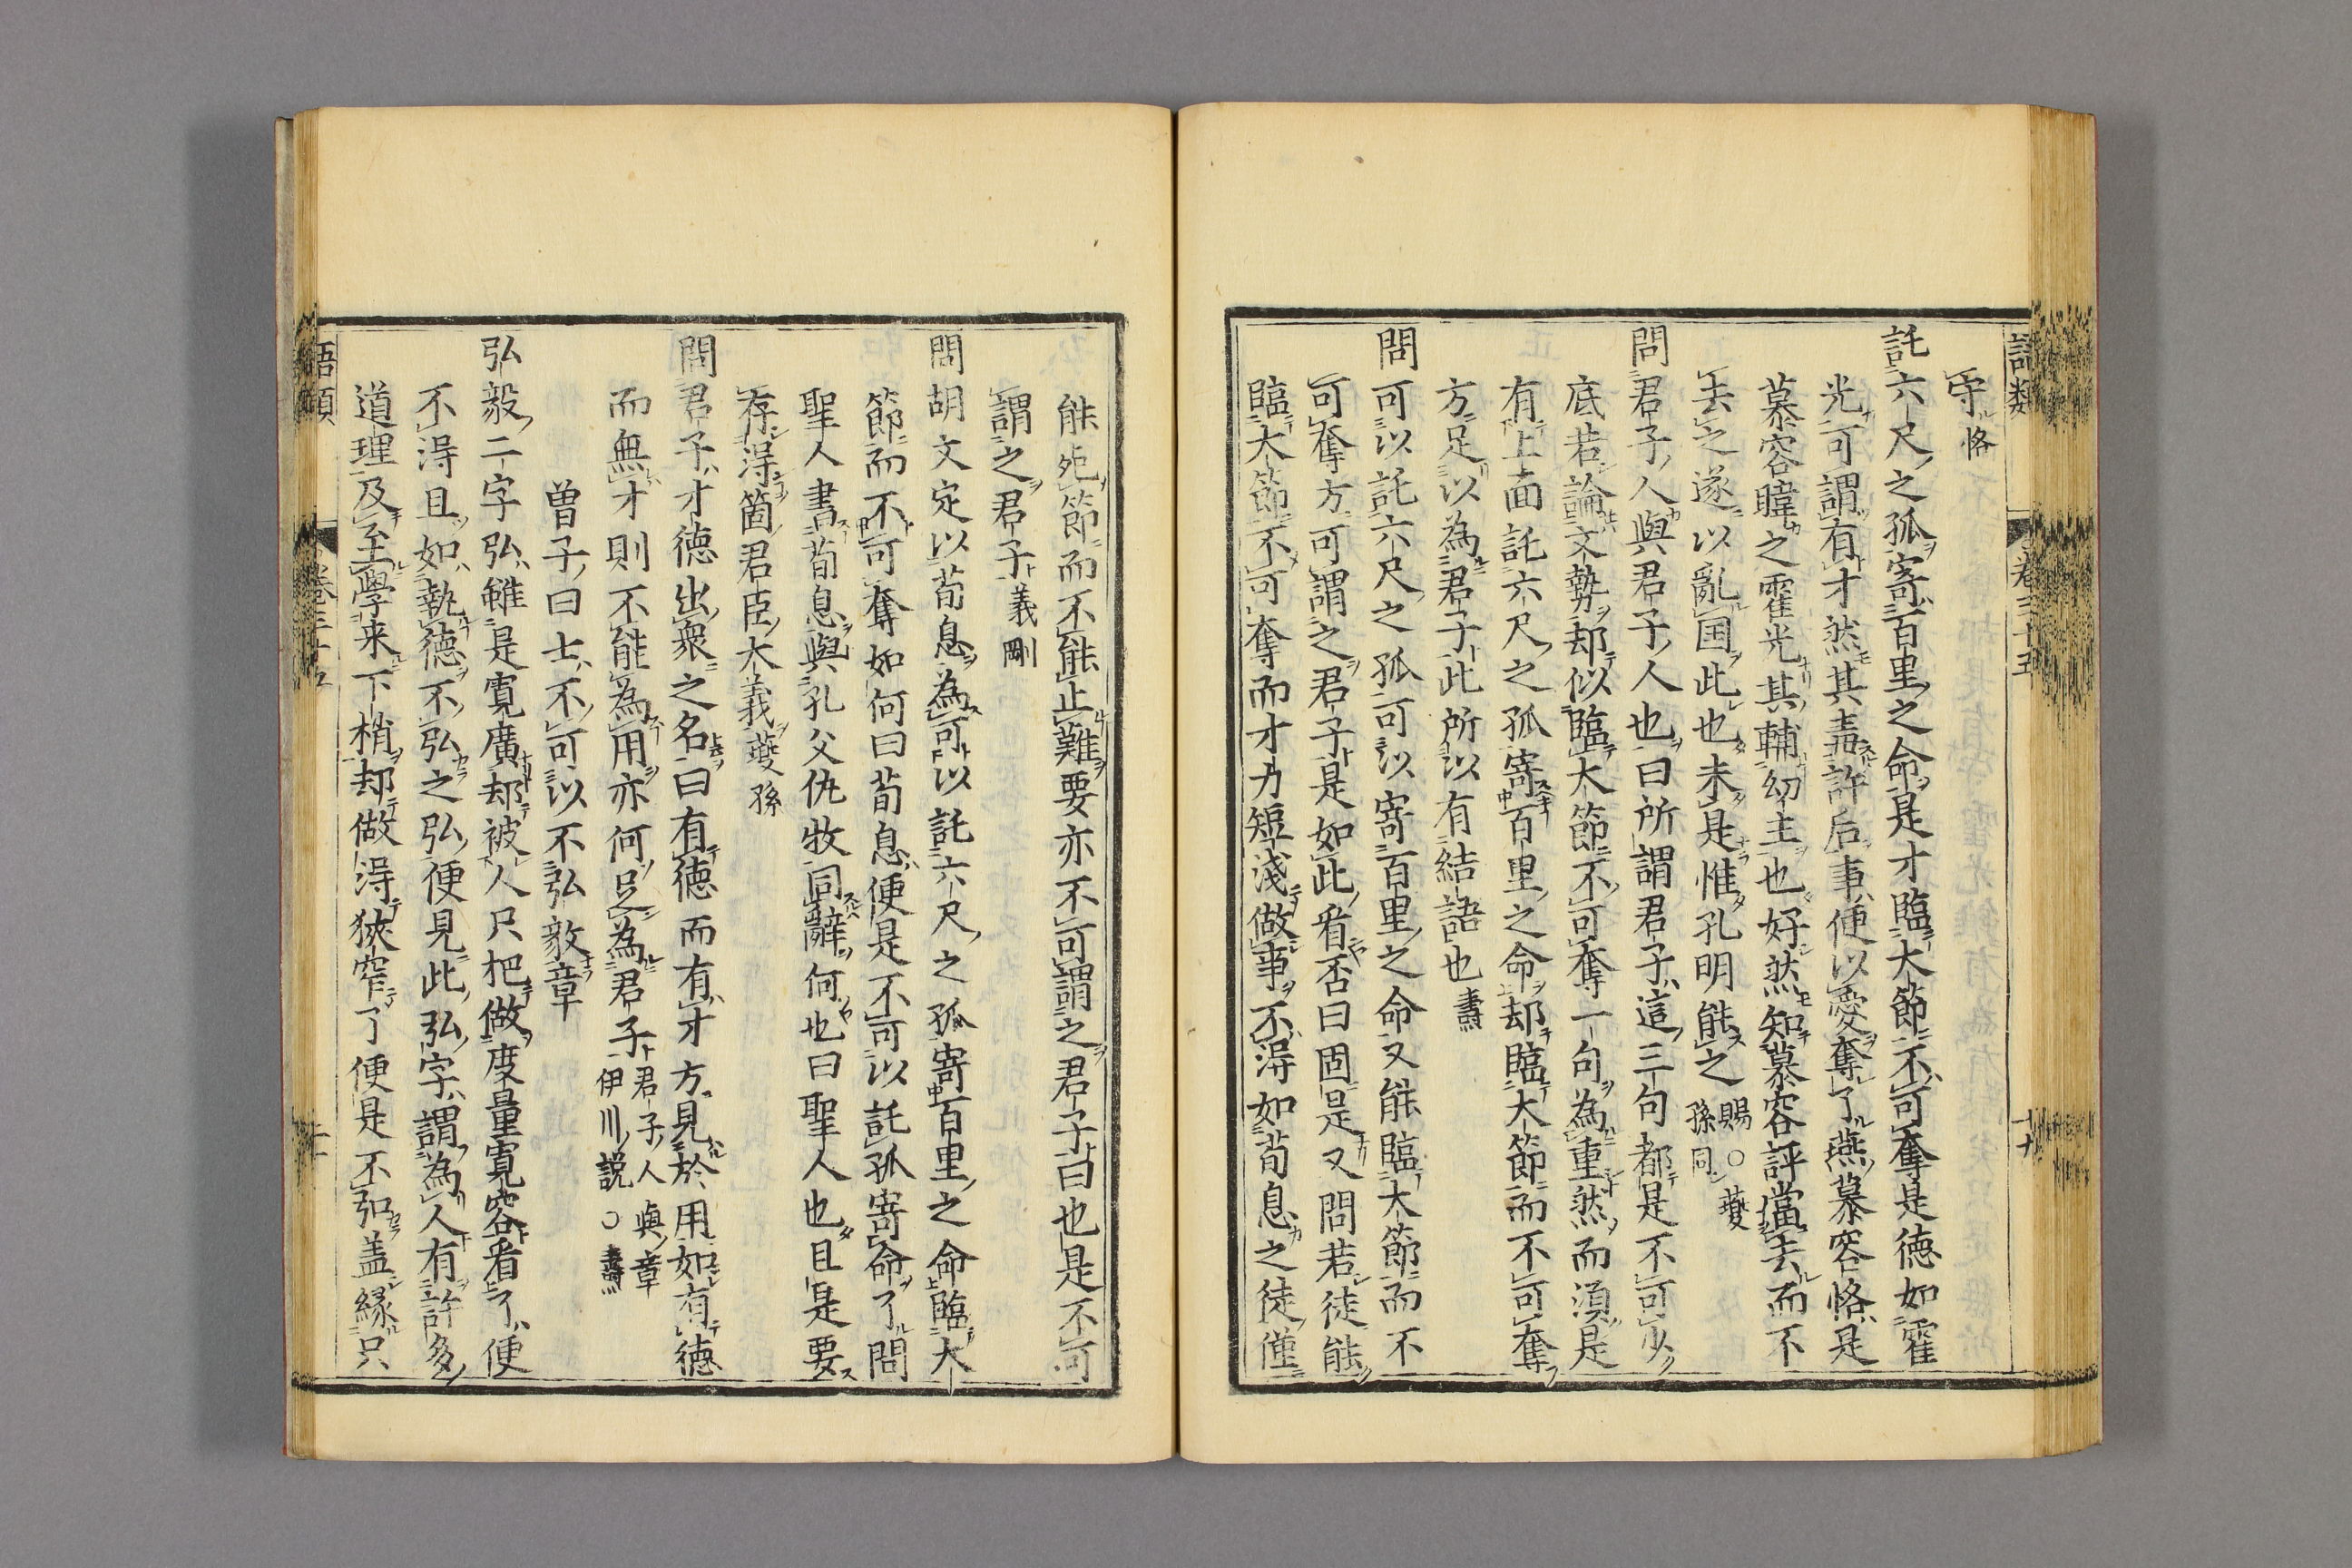 語類 卷三十五 十九
守 恪
託六尺之孤寄百里之命是才臨大節不可奪是德如霍
光可謂有才然其毒許后事便以愛奪了燕慕容恪是
慕容暐之霍光其輔幼主也好然知慕容評當去而不
去之遂以亂国此也未是惟孔明能之 賜○蘷孫同
問君子人與君子人也曰所謂君子這三句都是不可少
底若論文勢却似臨大節不可奪一句為重然而須是
有上面託六尺之孤寄百里之命却臨大節而不可奪
方足以為君子此所以有結語也 燾
問可以託六尺之孤可以寄百里之命又能臨大節而不
可奪方可謂之君子是如此看否曰固是又問若徒能
臨大節不可奪而才力短淺做事不淂如荀息之徒僅
能死節而不能止難要亦不可謂之君子曰也是不可
謂之君子 義剛
問胡文定以荀息為可以託六尺之孤寄百里之命臨大
節而不可奪如何曰荀息便是不可以託孤寄命了問
聖人書荀息與孔父仇牧同辭何也曰聖人也且是要
存淂箇君臣大義 蘷孫
問君子才德出衆之名曰有德而有才方見於用如有德
而無才則不能為用亦何足為君子 君子人與章伊川說○燾
曽子曰士不可以不弘毅章
弘毅二字弘雖是寛廣却被人只把做度量寛容看了便
不淂且如執德不弘之弘便見此弘字謂為人有許多
道理及至學来下梢却做淂狹窄了便是不弘盖緣只
語類 卷三十五 二十